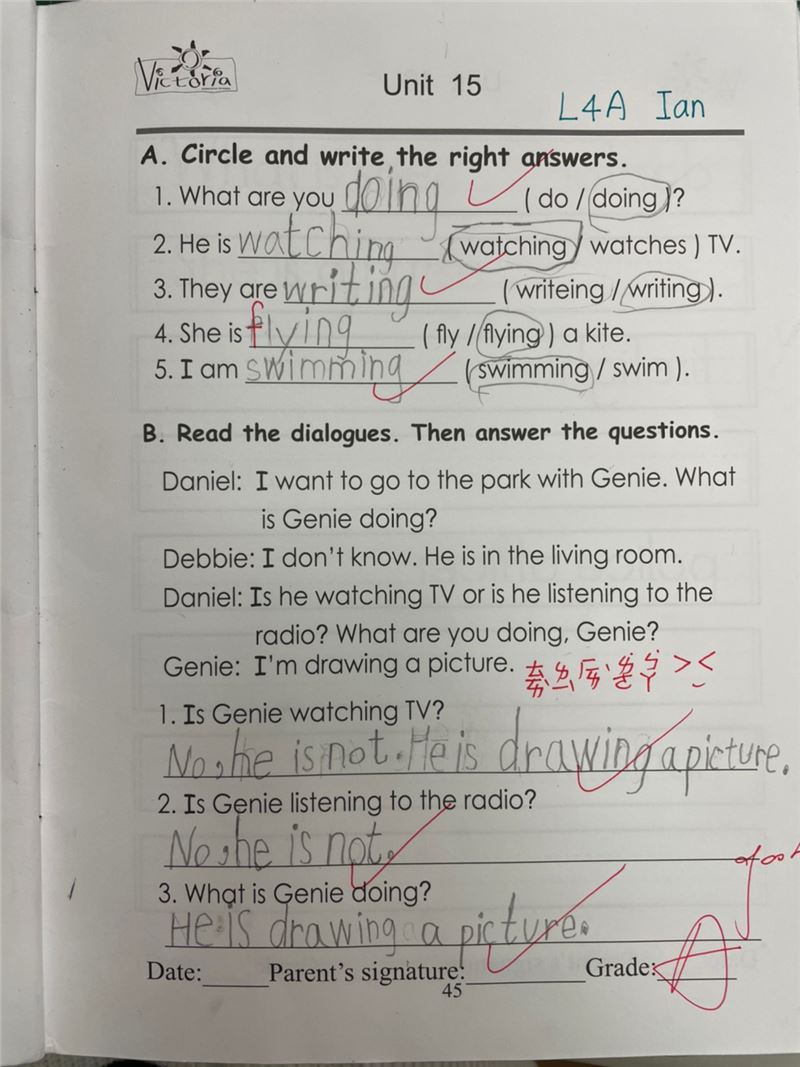 Victoria
Unit 15
L4A Ian
A. Circle and write the right answers.
1. What are you doing ( do / doing )?
2. He is watching ( watching / watches ) TV.
3. They are writing ( writeing / writing ).
4. She is flying ( fly / flying ) a kite.
5. I am swimming ( swimming / swim ).
B. Read the dialogues. Then answer the questions.
Daniel: I want to go to the park with Genie. What
is Genie doing?
Debbie: I don't know. He is in the living room.
Daniel: Is he watching TV or is he listening to the
radio? What are you doing, Genie?
Genie: I'm drawing a picture.
1. Is Genie watching TV?
No, he is not. He is drawing a picture.
2. Is Genie listening to the radio?
No, he is not.
3. What is Genie doing?
He is drawing a picture.
Date: Parent's signature: Grade: A
45